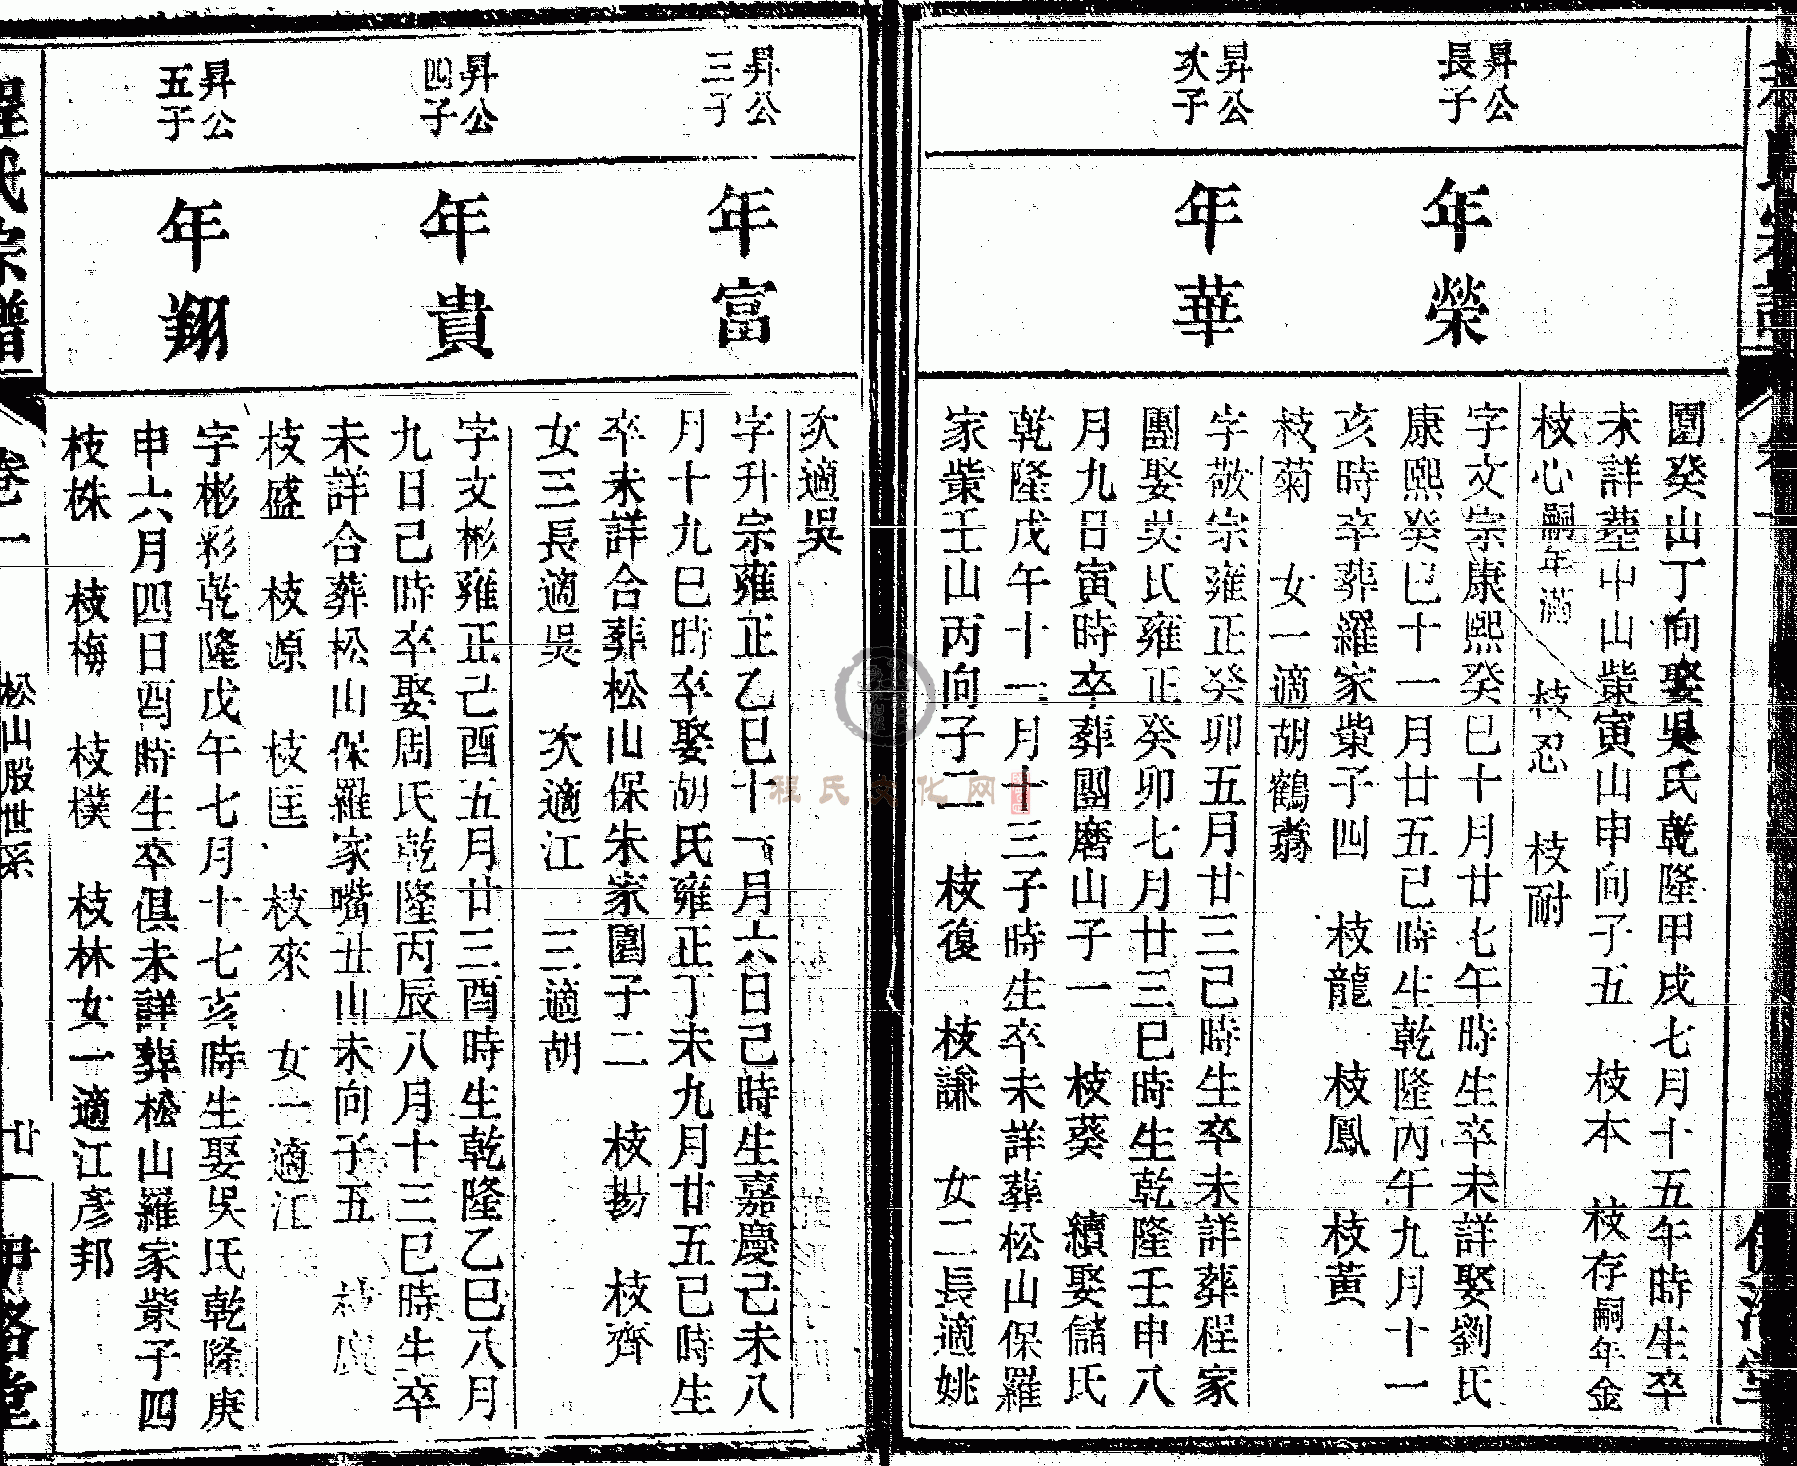 園癸山丁向娶吳氏乾隆甲戌七月十五午時生卒
未詳塟中山柴寅山申向子五 枝本 枝存嗣年金
枝心嗣年滿 枝忍 枝耐
昇公長子
年榮
字文宗康熙癸巳十月廿七午時生卒未詳娶劉氏
康熙癸巳十一月廿五巳時生乾隆丙午九月十一
亥時卒葬羅家柴子四 枝龍 枝鳳 枝黃
枝菊 女一適胡鶴翥
昇公次子
年華
字敬宗雍正癸卯五月廿三己時生卒未詳葬程家
團娶吳氏雍正癸卯七月廿三巳時生乾隆壬申八
月九日寅時卒葬團磨山子一 枝葵 續娶儲氏
乾隆戊午十一月十三子時生卒未詳葬松山保羅
家柴壬山丙向子二 枝復 枝謙 女二長適姚
次適吳
昇公三子
年富
字升宗雍正乙巳十一月六日己時生嘉慶己未八
月十九巳時卒娶胡氏雍正丁未九月廿五巳時生
卒未詳合葬松山保朱家園子二 枝揚 枝齊
女三長適吳 次適江 三適胡
昇公四子
年貴
字文彬雍正己酉五月廿三酉時生乾隆乙巳八月
九日己時卒娶周氏乾隆丙辰八月十三巳時生卒
未詳合葬松山保羅家嘴丑山未向子五 枝廣
枝盛 枝源 枝匡 枝來 女一適江
昇公五子
年翔
字彬彩乾隆戊午七月十七亥時生娶吳氏乾隆庚
申六月四日酉時生卒俱未詳葬松山羅家柴子四
枝株 枝梅 枝樸 枝林女一適江彥邦
程氏宗譜 卷一 松山股世系 廿一 伊洛堂
程氏文化网